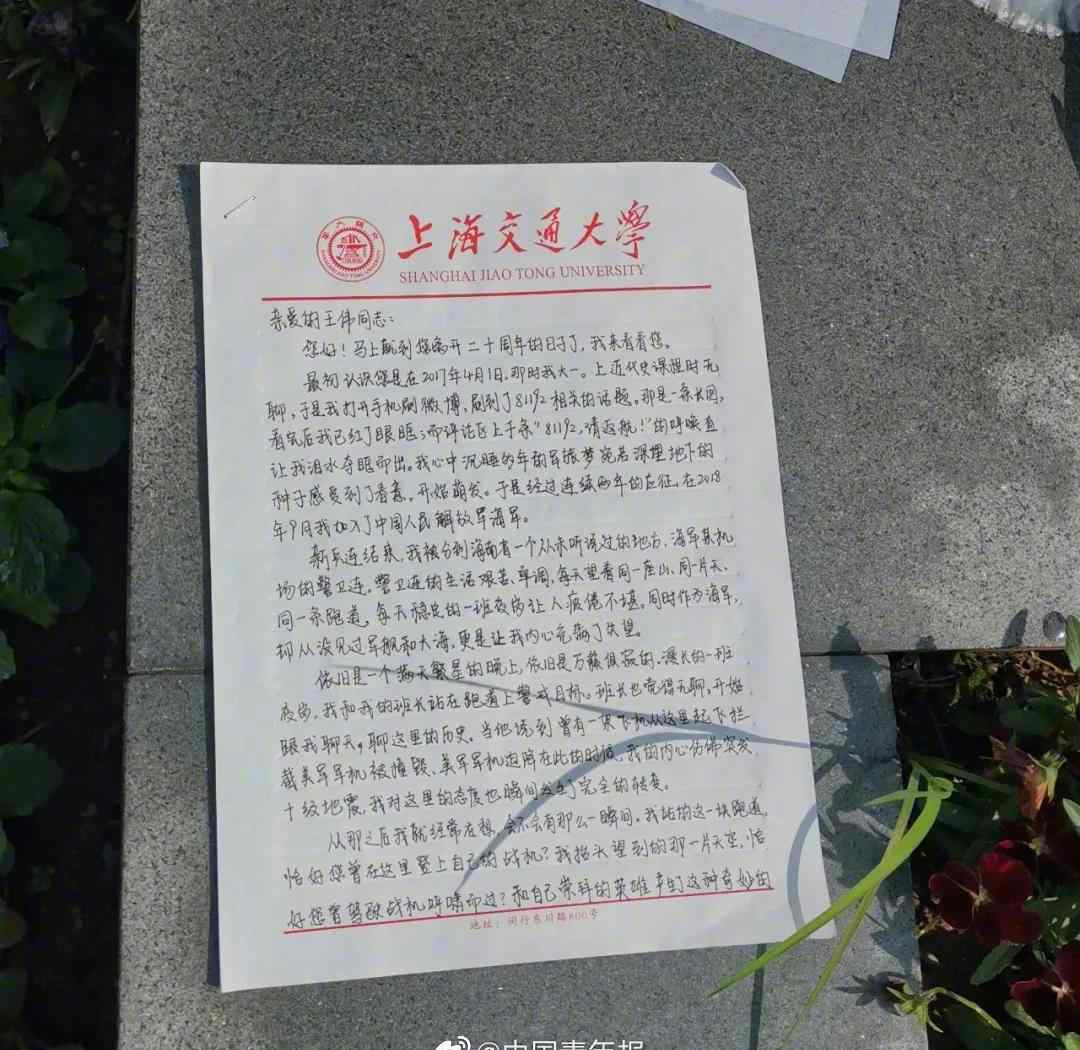 上海交通大学
SHANGHAI JIAO TONG UNIVERSITY
亲爱的王伟同志：
您好！马上就到您离开二十周年的日子了，我来看看您。
最初认识您是在2017年4月1日，那时我大一。上近代史课程时无
聊，于是我打开手机刷微博，刷到了81192相关的话题。那是一条长图，
看完后我已红了眼眶；而评论区上千条“81192，请返航！”的呼唤直
让我泪水夺眶而出。我心中沉睡多年的军旅梦宛若深埋地下的
种子感受到了春意，开始萌发。于是经过连续两年的应征，在2018
年9月我加入了中国人民解放军海军。
新兵连结束，我被分到海南省一个从未听说过的地方，海军某机
场的警卫连。警卫连的生活艰苦、单调，每天望着同一座山、同一片天、
同一条跑道，每天稳定的一班夜岗让人疲倦不堪。同时作为海军，
却从没见过军舰和大海，更是让我内心充满了失望。
依旧是一个满天繁星的晚上，依旧是万籁俱寂的、漫长的一班
夜岗，我和我的班长站在跑道上警戒目标。班长也觉得无聊，开始
跟我聊天，聊这里的历史。当他谈到曾有一架飞机从这里起飞拦
截美军军机被撞毁、美军军机迫降在此的时候，我的内心仿佛突发
十级地震，我对这里的态度也瞬间发生了完全的转变。
从那之后我就经常在想，会不会有那么一瞬间，我站的这一块跑道，
恰好您曾在这里登上自己的战机？我抬头望到的那一片天空，恰
好您曾驾驶战机呼啸而过？和自己崇拜的英雄产生这种奇妙的
地址：闵行东川路800号
@中国青年报